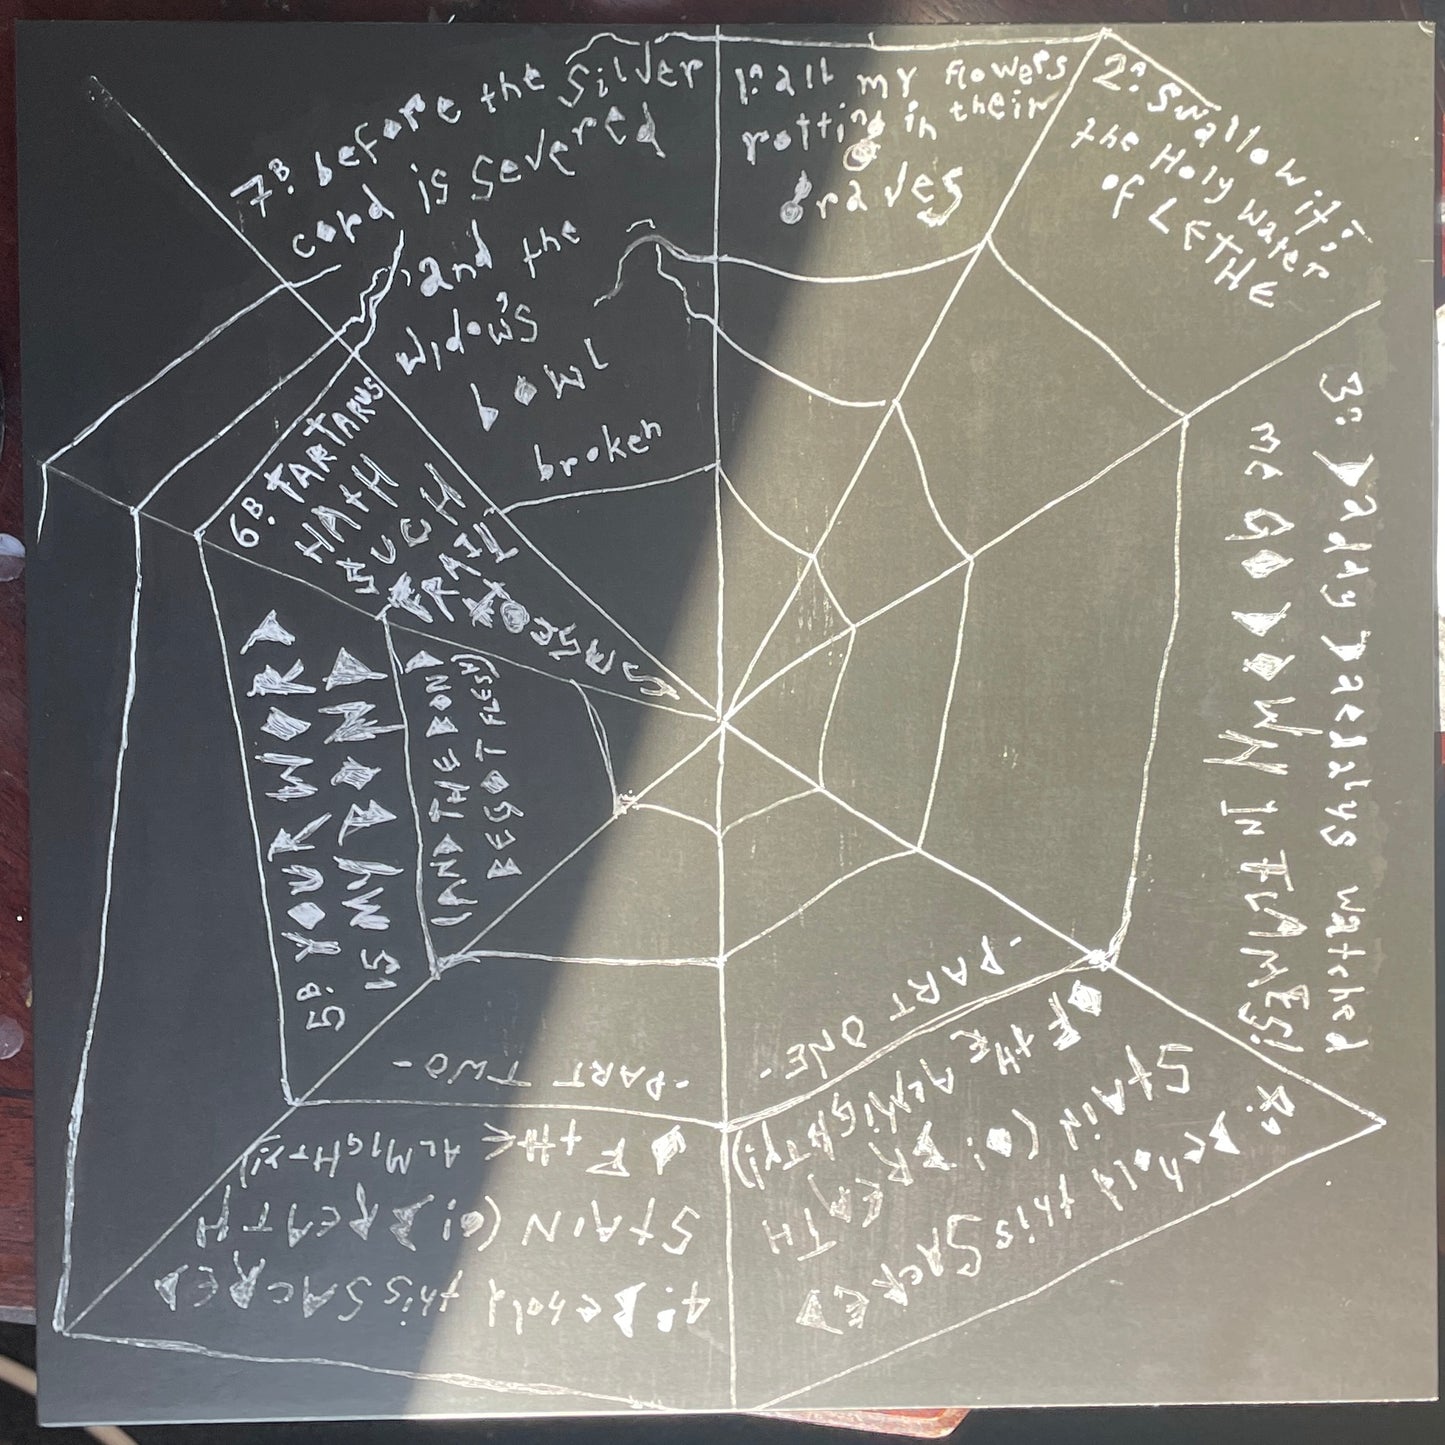 1ᴬ: all my flowers
rotting in their
graves
2ᴬ: Swallow it,
the Holy Water
of LETHE
3ᴬ: Daddy Daedalys watched
me GO DOWN IN FLAMES!
4ᴬ: Behold this SACRED
STAIN (O! BREATH
OF tHE ALMIGHTY!)
- PART ONE -
4ᴮ: Behold this SACRED
STAIN (O! BREATH
OF tHE
ALMIGHTY!)
- PART TWO -
5ᴮ: YOUR WORD
IS MY BOND
(AND THE BOND
BEGOT FLESH)
6ᴮ: TARTARUS
HAtH
SUCH
FRAIL
7ᴮ: before the Silver
cord is severed
and the
widow's
bowl
broken